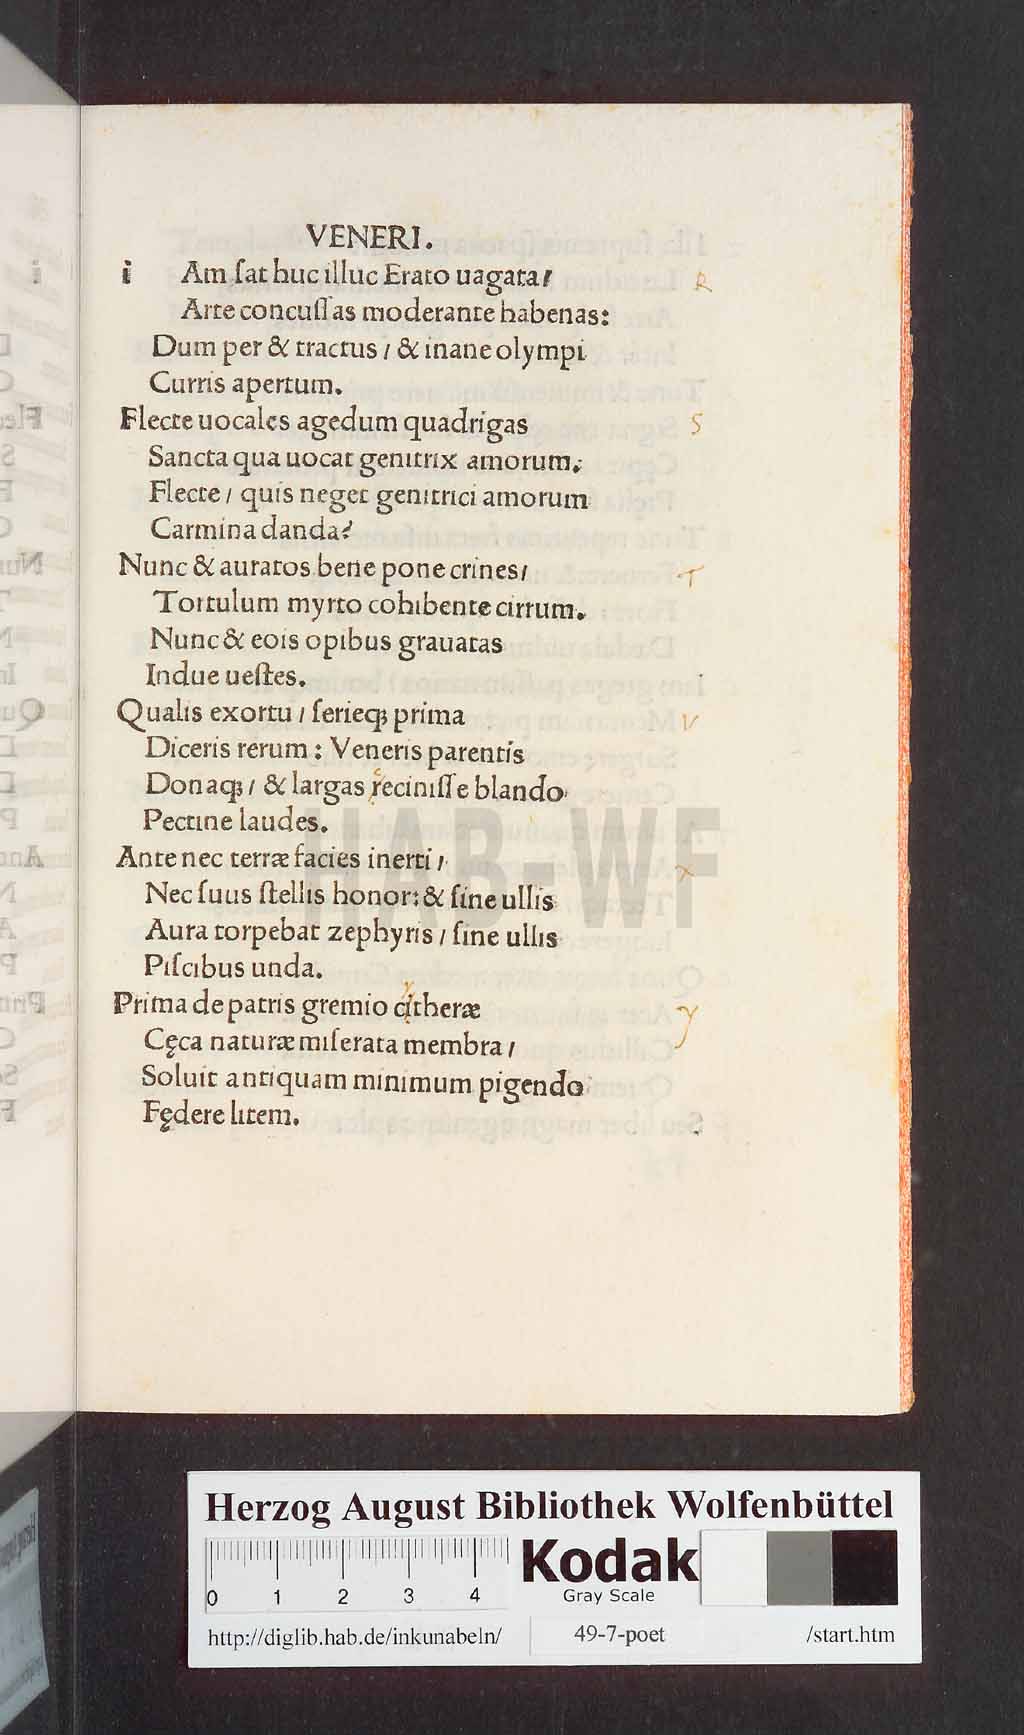 VENERI.
i Am ſat huc illuc Erato uagata/
R
Arte concuſſas moderante habenas:
Dum per & tractus / & inane olympi
Curris apertum.
Flecte uocales agedum quadrigas
S
Sancta qua uocat genitrix amorum.
Flecte / quis neget genitrici amorum
Carmina danda?
Nunc & auratos bene pone crines/
T
Tortulum myrto cohibente cirrum.
Nunc & eois opibus grauatas
Indue ueſtes.
Qualis exortu / ſerieqꝫ prima
V
Diceris rerum: Veneris parentis
Donaqꝫ / & largas reciniſſe blando
Pectine laudes.
Ante nec terræ facies inerti /
x
Nec ſuus ſtellis honor: & ſine ullis
Aura torpebat zephyris / ſine ullis
Piſcibus unda.
Prima de patris gremio citheræ
y
Cęca naturæ miſerata membra /
Soluit antiquam minimum pigendo
Fędere litem.
HAB-WF
Herzog August Bibliothek Wolfenbüttel
0 1 2 3 4
Kodak
Gray Scale
http://diglib.hab.de/inkunabeln/ 49-7-poet /start.htm